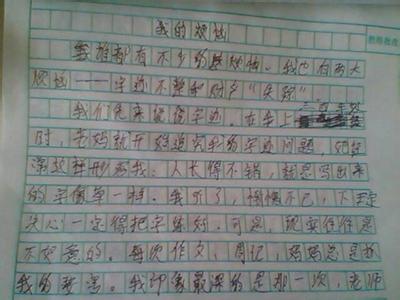 我的烦恼
谁都有不少的烦恼。我也有两大
烦恼——字迹不整和 “失踪”
我们先来说说字迹。在上三年级
时，老妈就开始追究我的字迹问题，她经
常这样形容我：人长得不错，就是写出来
的字像草一样。我听了，惭愧不已，下定
决心一定得把字练好。可是，现实往往是
不如意的。每次作文，周记，妈妈总是
我的要害。我印象最深的是那一次，老师